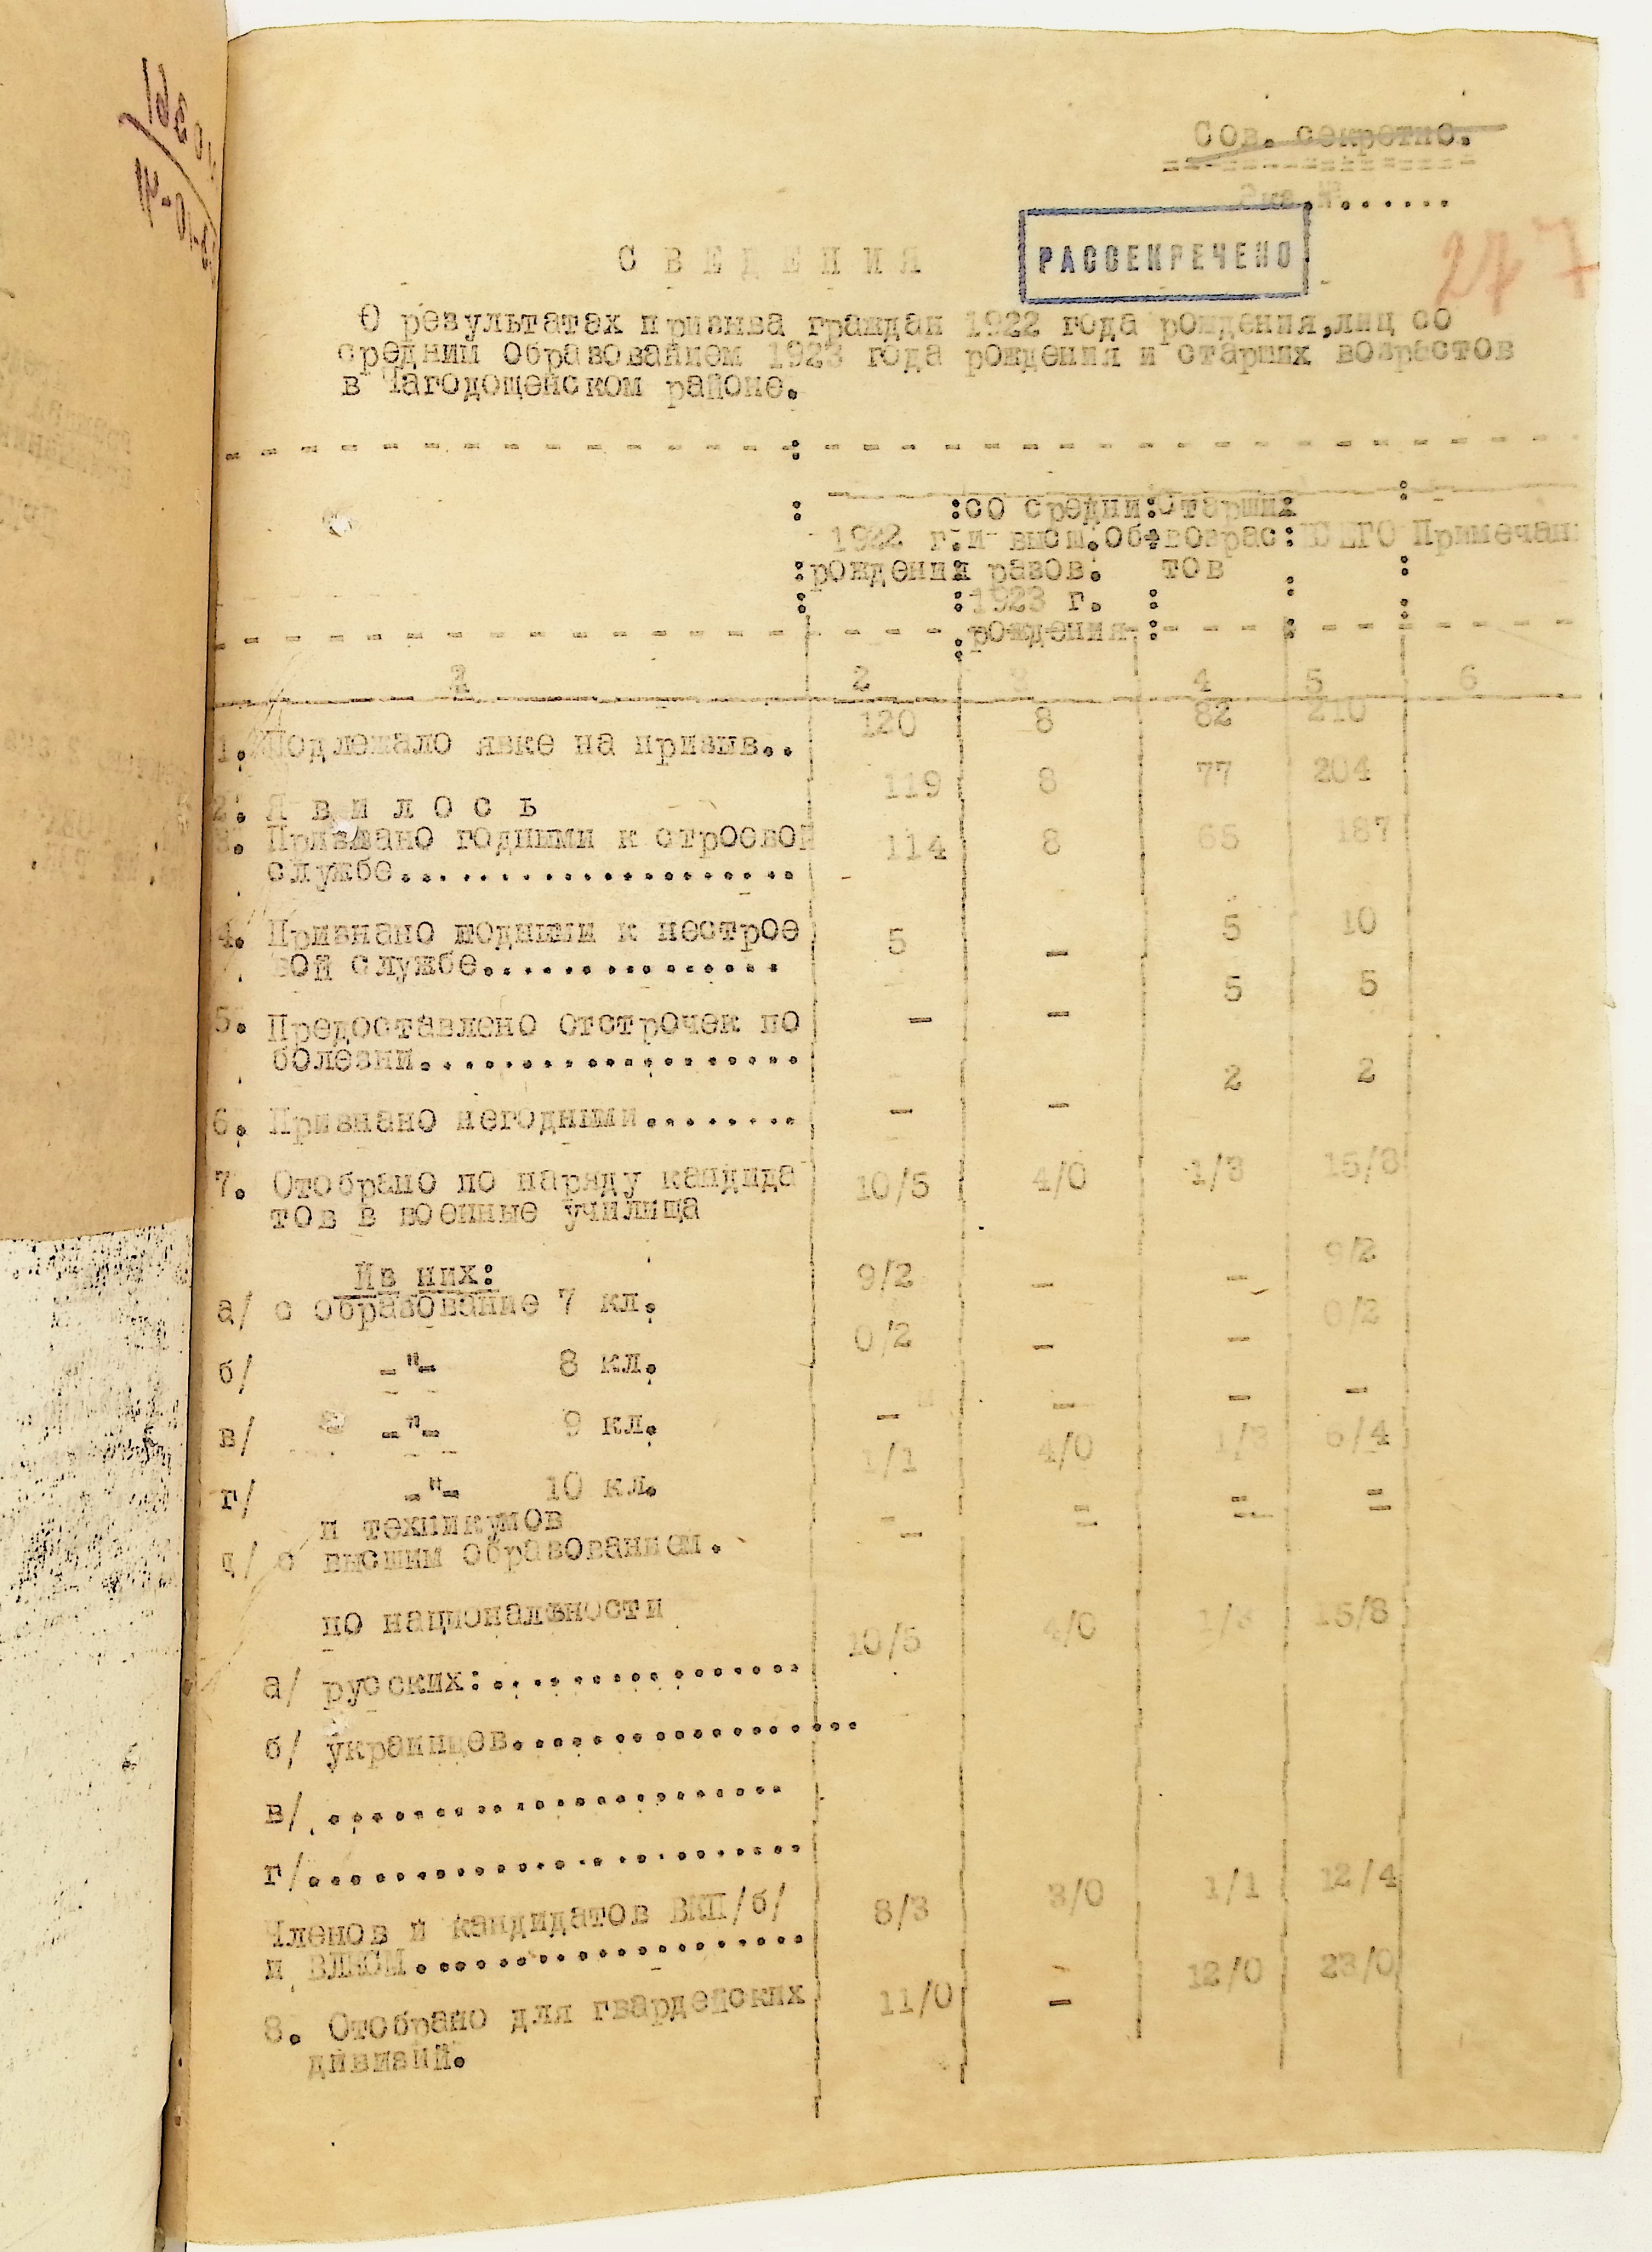 Сов. секретно.
Экз.№......
С В Е Д Е Н И Я
РАССЕКРЕЧЕНО
О результатах призыва граждан 1922 года рождения,лиц со
средним образованием 1923 года рождения и старших возрастов
в Чагодощенском районе.
:со средни:Старших
1922 г.:и высш.об-:возрас:ВСЕГО Примечан
:рождения: разов. тов
:1923 г.
рождения
1 2 3 4 5 6
1. Подлежало явке на призыв.. 120 8 82 210
2. Я в и л о с ь 119 8 77 204
3. Признано годными к строевой 114 8 65 187
службе.....................
4. Признано годными к нестрое 5 - 5 10
вой службе................
5. Предоставлено отстрочек по - - 5 5
болезни....................
6. Признано негодными........ - - 2 2
7. Отобрано по наряду кандида 10/5 4/0 1/3 15/8
тов в военные училища
Из них:
а/ с образование 7 кл. 9/2 - - 9/2
б/ -"- 8 кл. 0/2 - - 0/2
в/ -"- 9 кл. - - - -
г/ -"- 10 кл. 1/1 4/0 1/3 6/4
и техникумов
д/ с высшим образованием. - - - =
по национальности
а/ русских:................ 10/5 4/0 1/3 15/8
б/ украинцев..................
в/ .......................
г/.......................
Членов и кандидатов ВКП/б/ 8/3 3/0 1/1 12/4
и ВЛКСМ....................
8. Отобрано для гвардейских 11/0 - 12/0 23/0
дивизий.